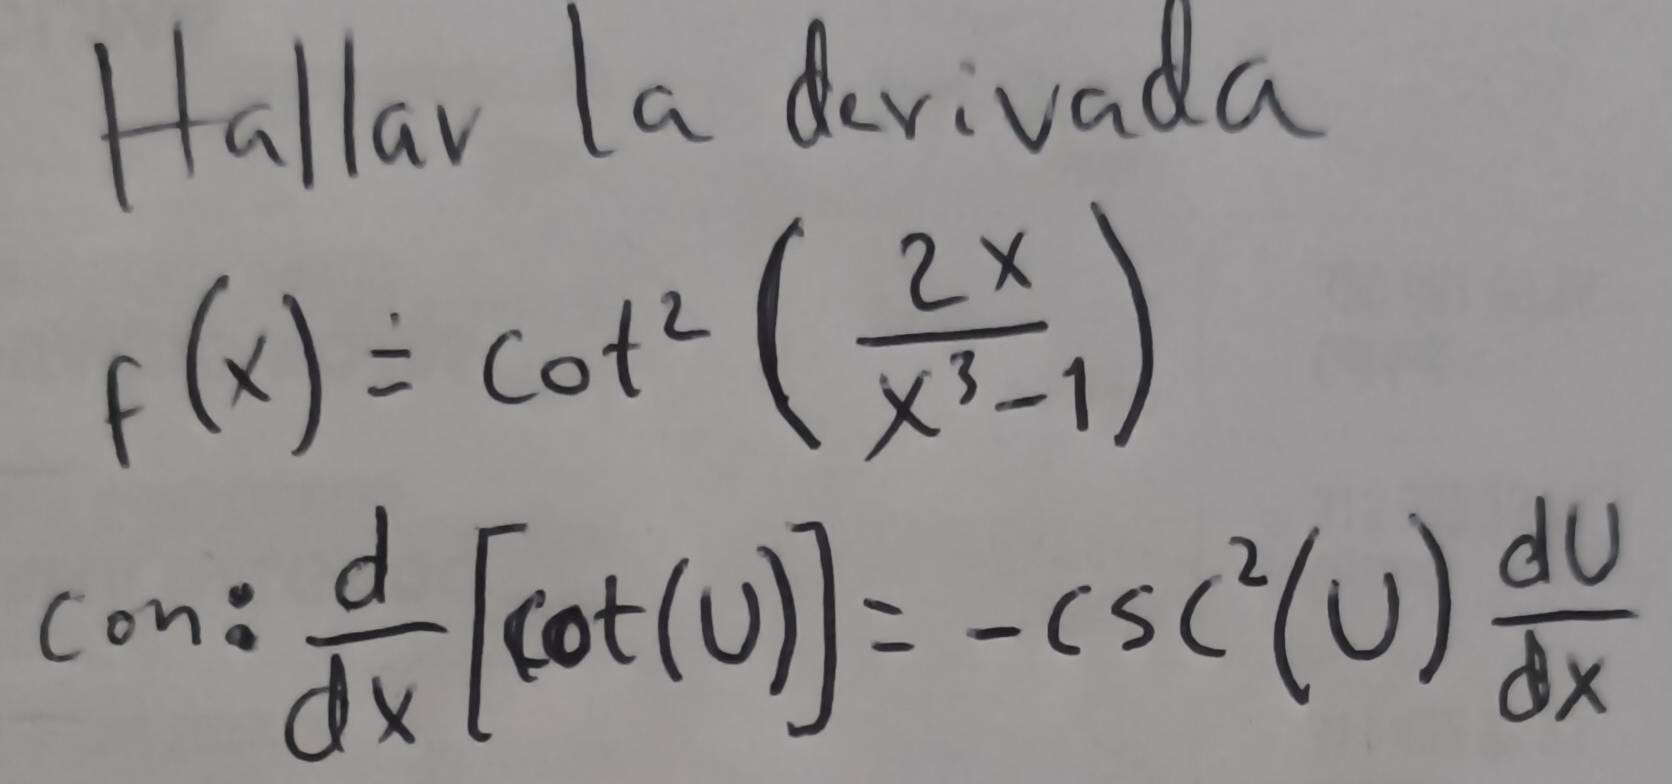 Hallar la derivada
f(x) = cot² (2x / x³-1)
con: d/dx [cot(U)] = -csc²(U) dU/dx